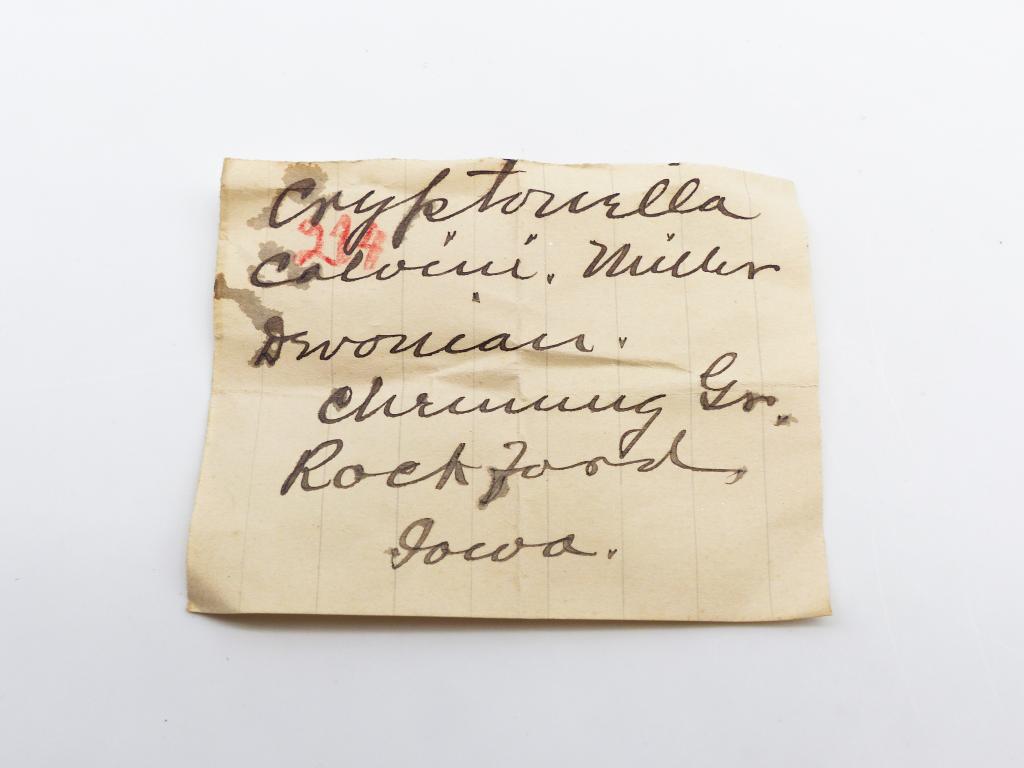 Cryptonella
224
Calvini. Miller
Devonian.
Chemung Gr.
Rockford,
Iowa.